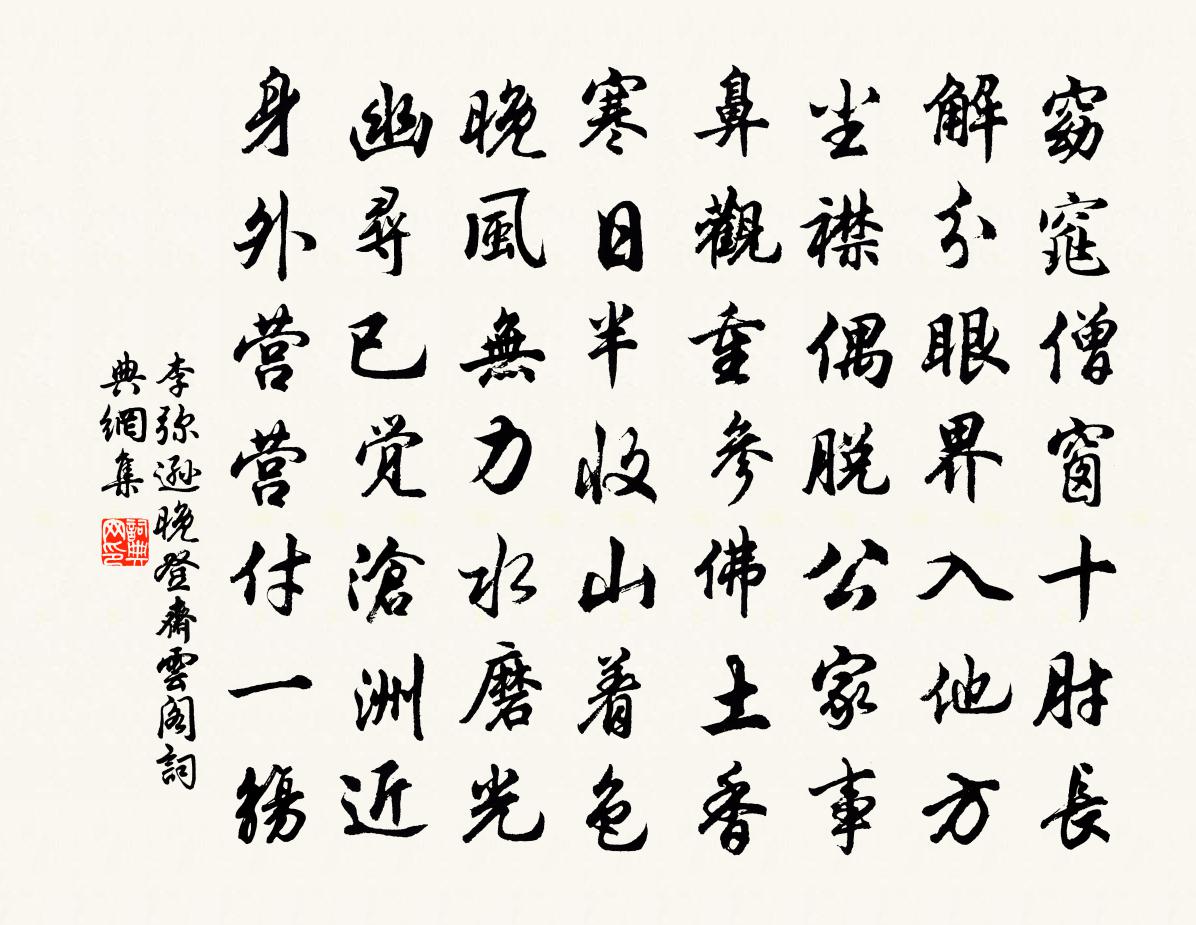 窈窕僧窗十肘長
解分眼界入他方
尘襟偶脱公家事
鼻觀重參佛土香
寒日半收山着色
晚風無力水磨光
幽尋已觉滄洲近
身外营营付一觴
李弥遜晚登齋雲阁詞
典網集
詞典网印